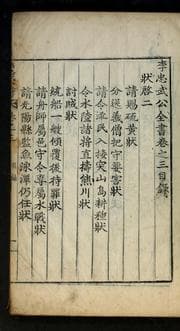 李忠武公全書卷之三目錄
狀啓二
請賜硫黃狀
分送義僧把守要害狀
請令流民入接突山島耕種狀
令水陸諸將直擣熊川狀
討賊狀
統船一艘傾覆後待罪狀
請舟師屬邑守令專屬水戰狀
請光陽縣監魚泳潭仍任狀